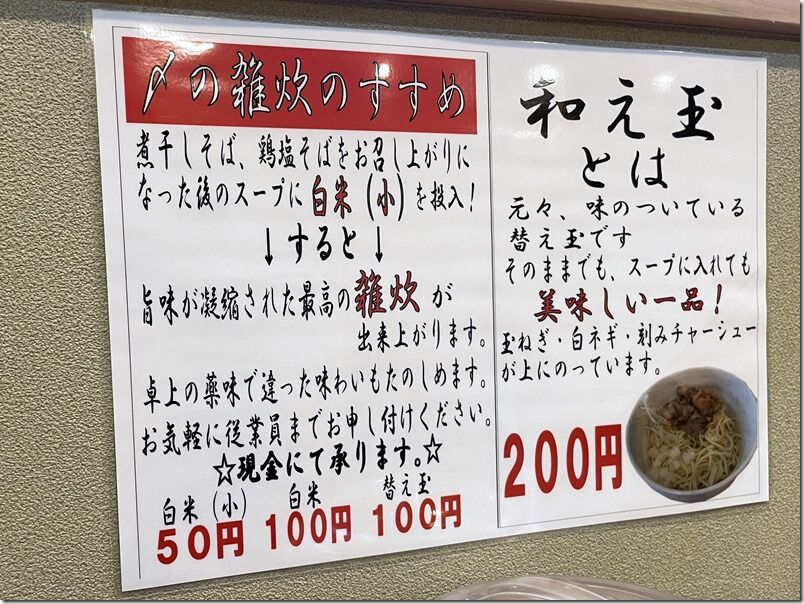 〆の雑炊のすすめ
煮干しそば、鶏塩そばをお召し上がりに
なった後のスープに白米(小)を投入!
↓すると↓
旨味が凝縮された最高の雑炊が
出来上がります。
卓上の薬味で違った味わいもたのしめます。
お気軽に従業員までお申し付けください。
☆現金にて承ります。☆
白米(小) 白米 替え玉
50円 100円 100円
和え玉
とは
元々、味のついている
替え玉です
そのままでも、スープに入れても
美味しい一品!
玉ねぎ・白ネギ・刻みチャーシュー
が上にのっています。
200円